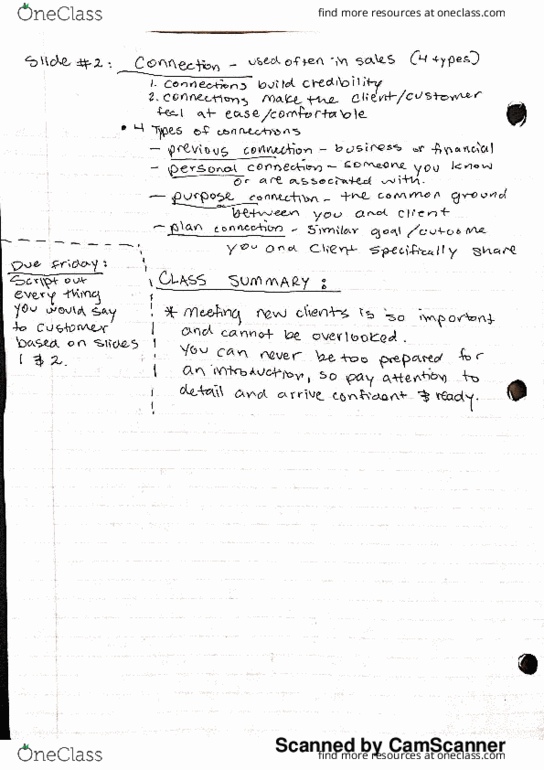 OneClass
find more resources at oneclass.com
Slide #2: Connection - used often in sales (4 types)
1. connections build credibility
2. connections make the client/customer
feel at ease/comfortable
• 4 Types of connections
- previous connection - business or financial
- personal connection - someone you know
or are associated with.
- purpose connection - the common ground
between you and client
- plan connection - similar goal/outcome
you and client specifically share
Due Friday:
Script out
every thing
you would say
to customer
based on slides
1 & 2.
CLASS SUMMARY:
* Meeting new clients is so important
and cannot be overlooked.
You can never be too prepared for
an introduction, so pay attention to
detail and arrive confident & ready.
Scanned by CamScanner
OneClass
find more resources at oneclass.com